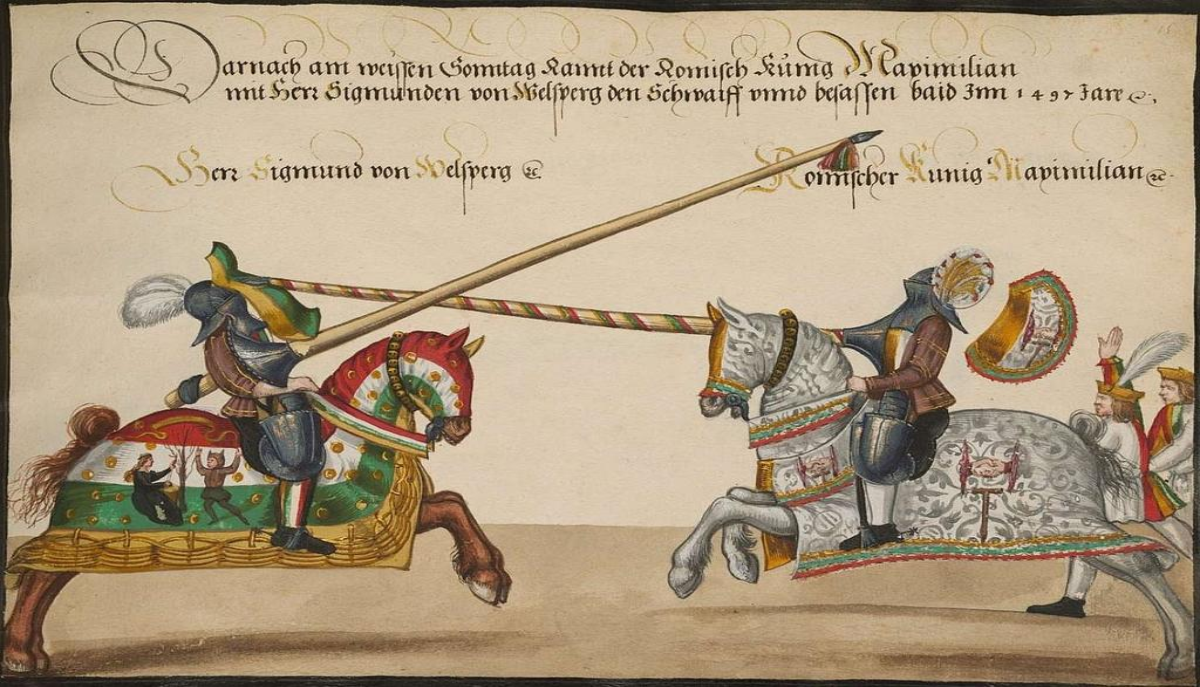 Darnach am weissen Sonntag Rannt der Romisch Kunig Maximilian
mit Herr Sigmunden von Welsperg den Schwaiff vnnd besassen baid Inn 1497 Jare &.
Herr Sigmund von Welsperg &c.
Romischer Kunig Maximilian &c.